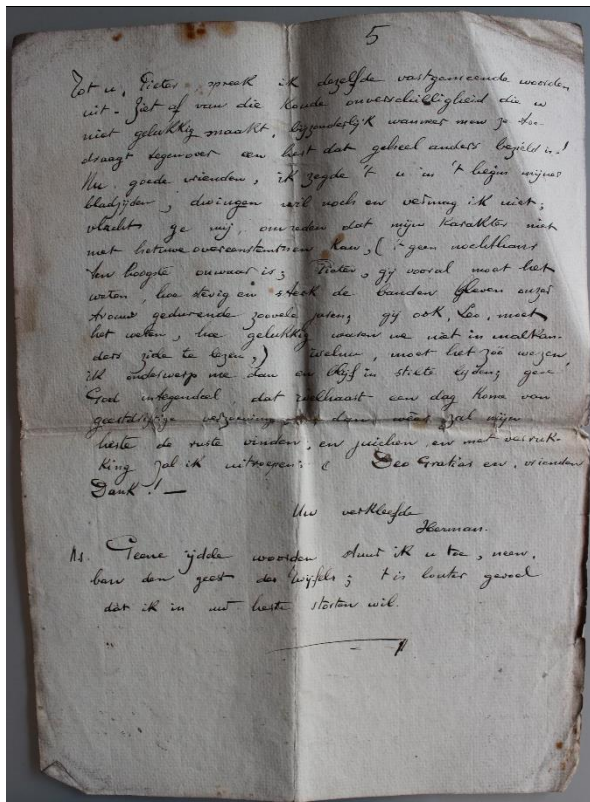 5
Tot u, Pieter spreek ik dezelfde vastgemeende woorden
uit. Ziet af van die koude onverschilligheid die u
niet gelukkig maakt, byzonderlijk wanneer men ze toe-
draagt tegenover een hert dat geheel anders bezield is!
Nu goede vrienden, ik zegde 't u in 't begin mijner
bladzijden; dwingen wil noch en vermag ik niet;
vlucht ge mij, om reden dat mijn karakter niet
met het uwe overeenstemmen kan, (t geen nochthans
ten hoogste onwaar is; Pieter, gij vooral moet het
weten, hoe stevig en sterk de banden bleven onzer
trouw gedurende zoovele jaren; gij ook, Leo, moet
het weten, hoe gelukkig waren we niet in malkan-
ders zide te lezen,) welnu, moet het zóó wezen,
ik onderwerp me dan en blijf in stilte lijden; geve
God integendeel, dat welhaast een dag kome van
geestdriftige verzoening, dan weer zal mijn
herte de ruste vinden, en juichen, en met verruk-
king zal ik uitroepen: Deo Gratias en, vrienden
Dank! —
Uw verkleefde
Herman.
Ns. Geene ijdde woorden stuur ik u toe, neen,
ban den geest des twijfels; t is louter gevoel
dat ik in uw herte storten wil.